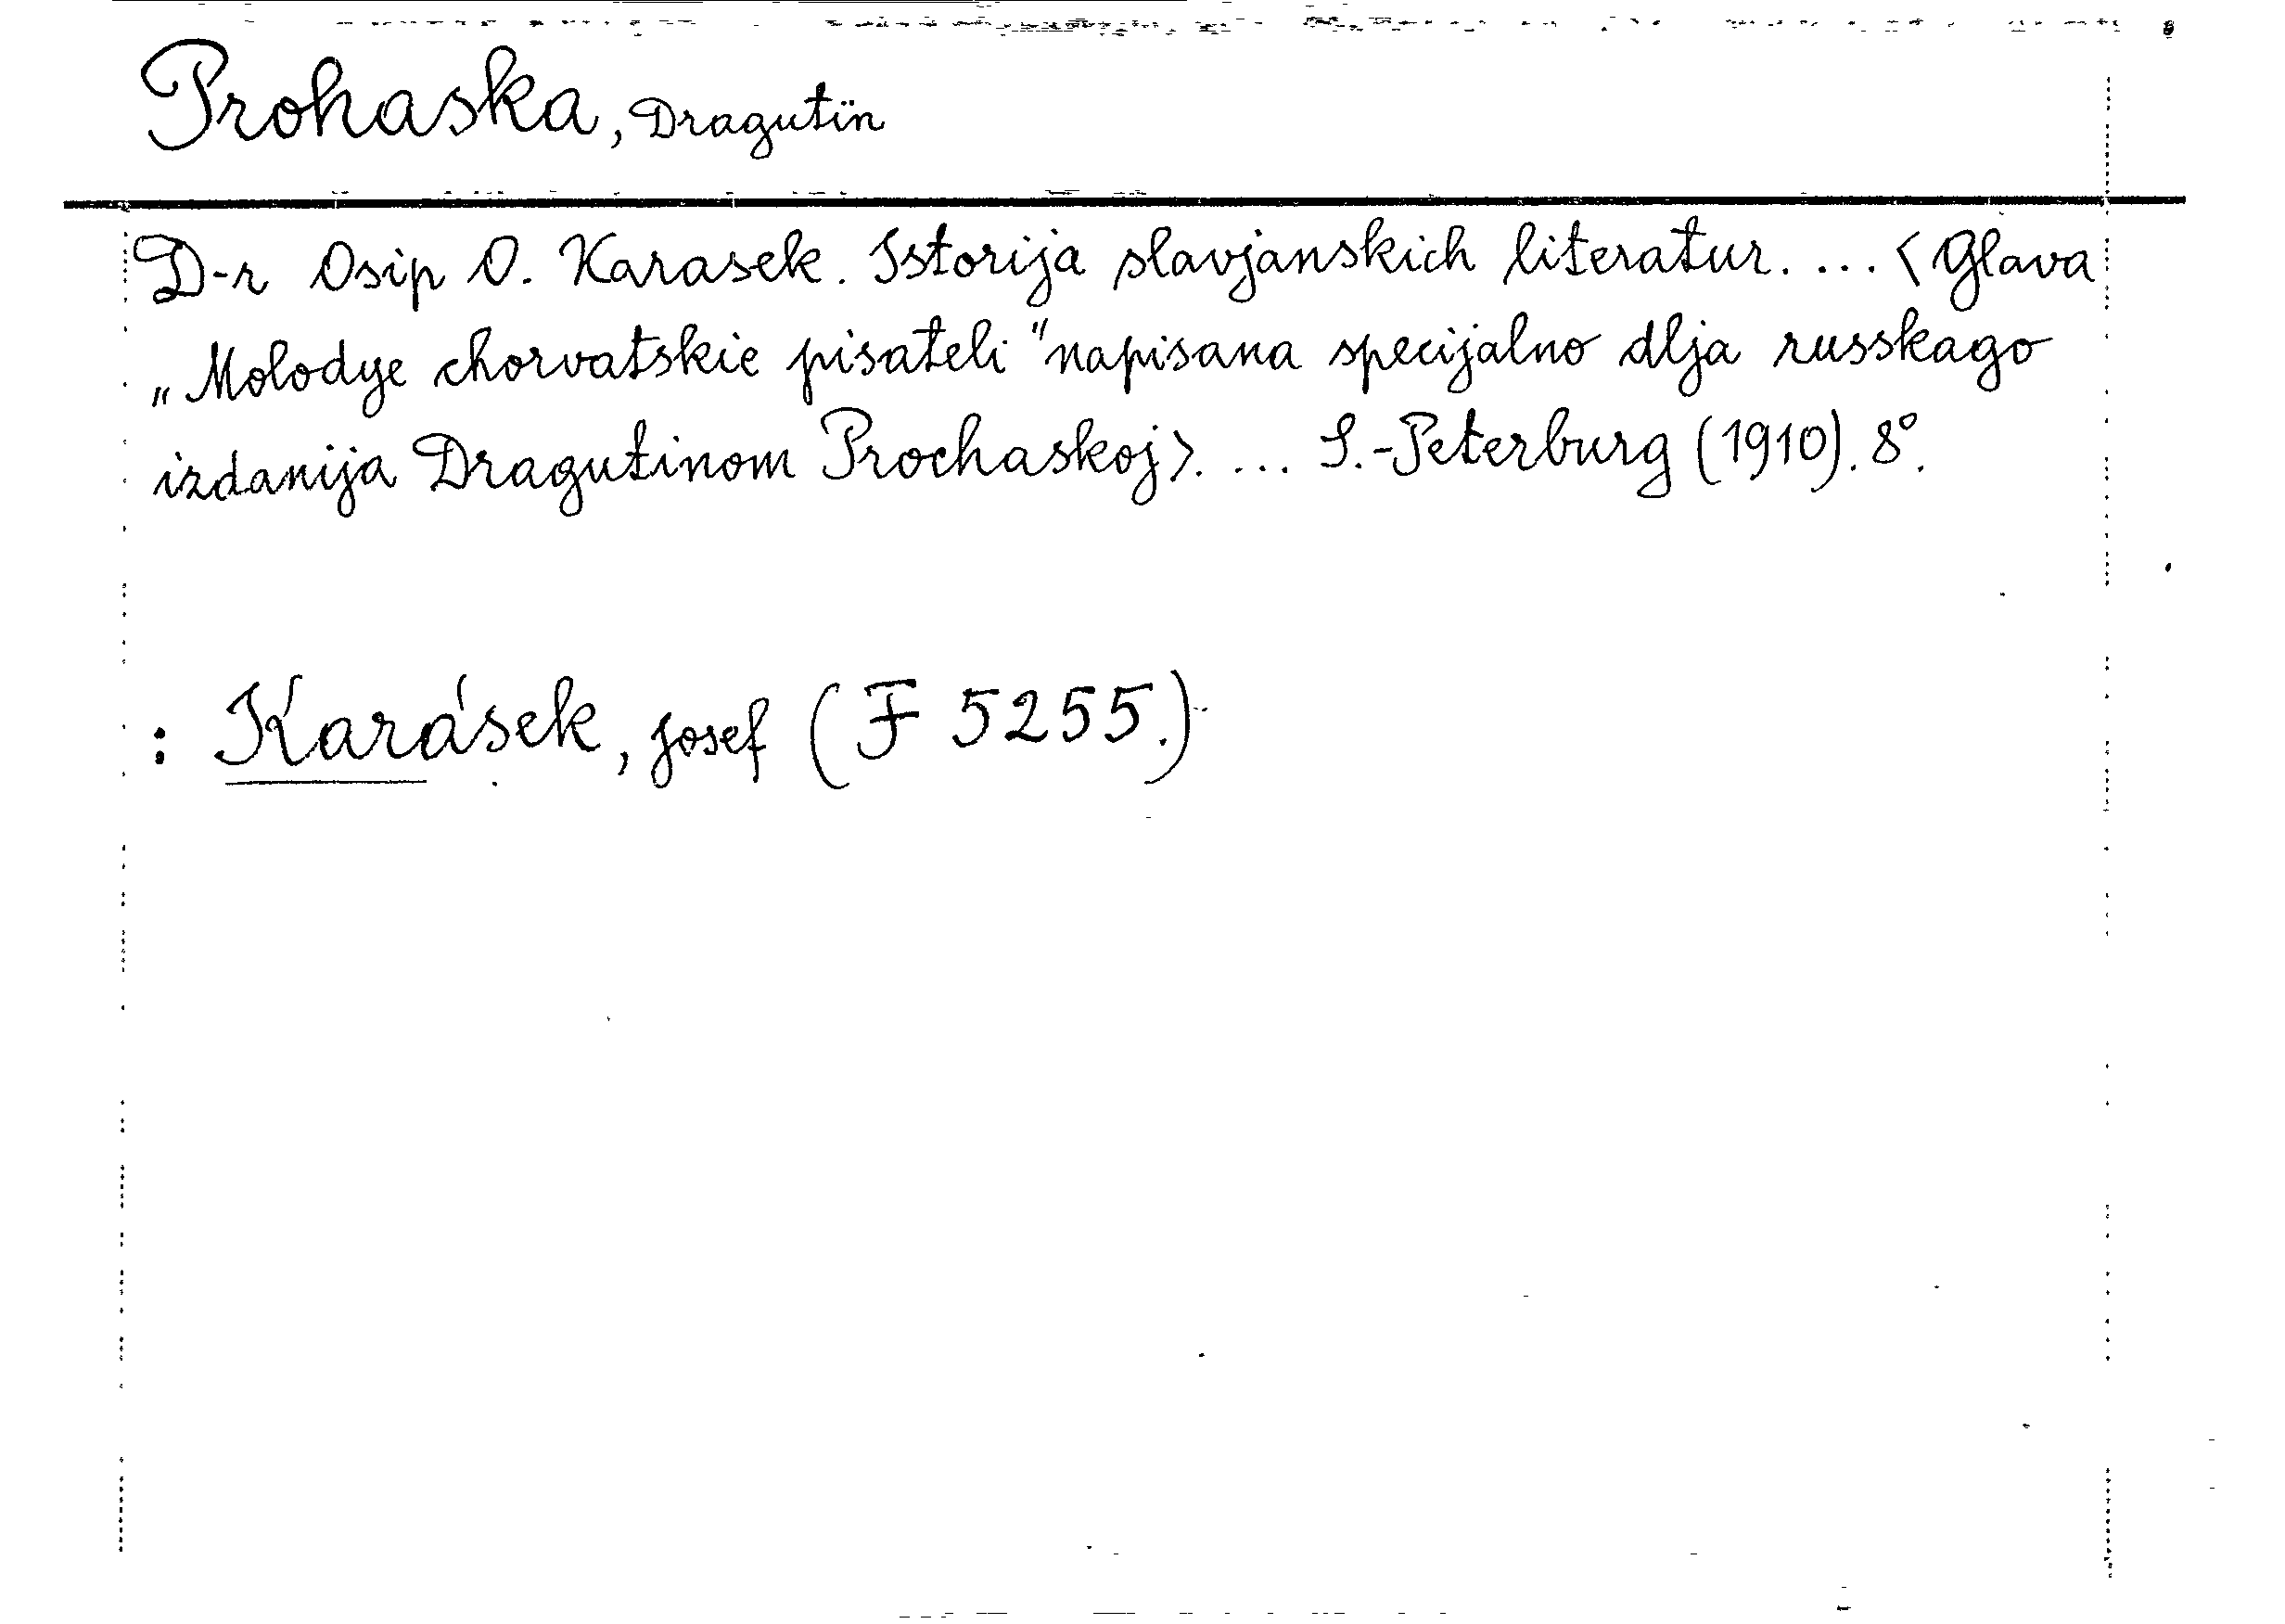 Prohaska, Dragutin
D-r Osip O. Karasek. Istorija slavjanskich literatur. ... <Glava
„Molodye chorvatskie pisateli" napisana specijalno dlja russkago
izdanija Dragutinom Prochaskoj>. ... S.-Peterburg (1910). 8°.
: Karásek, Josef (F 5255.)